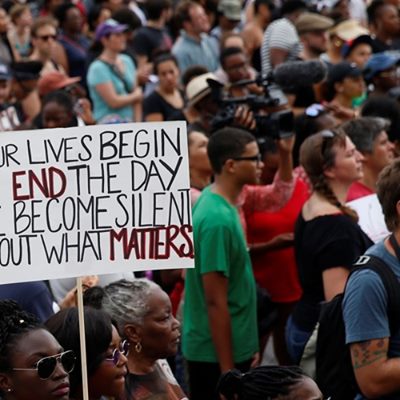 UR LIVES BEGIN
END THE DAY
BECOME SILENT
OUT WHAT MATTERS.